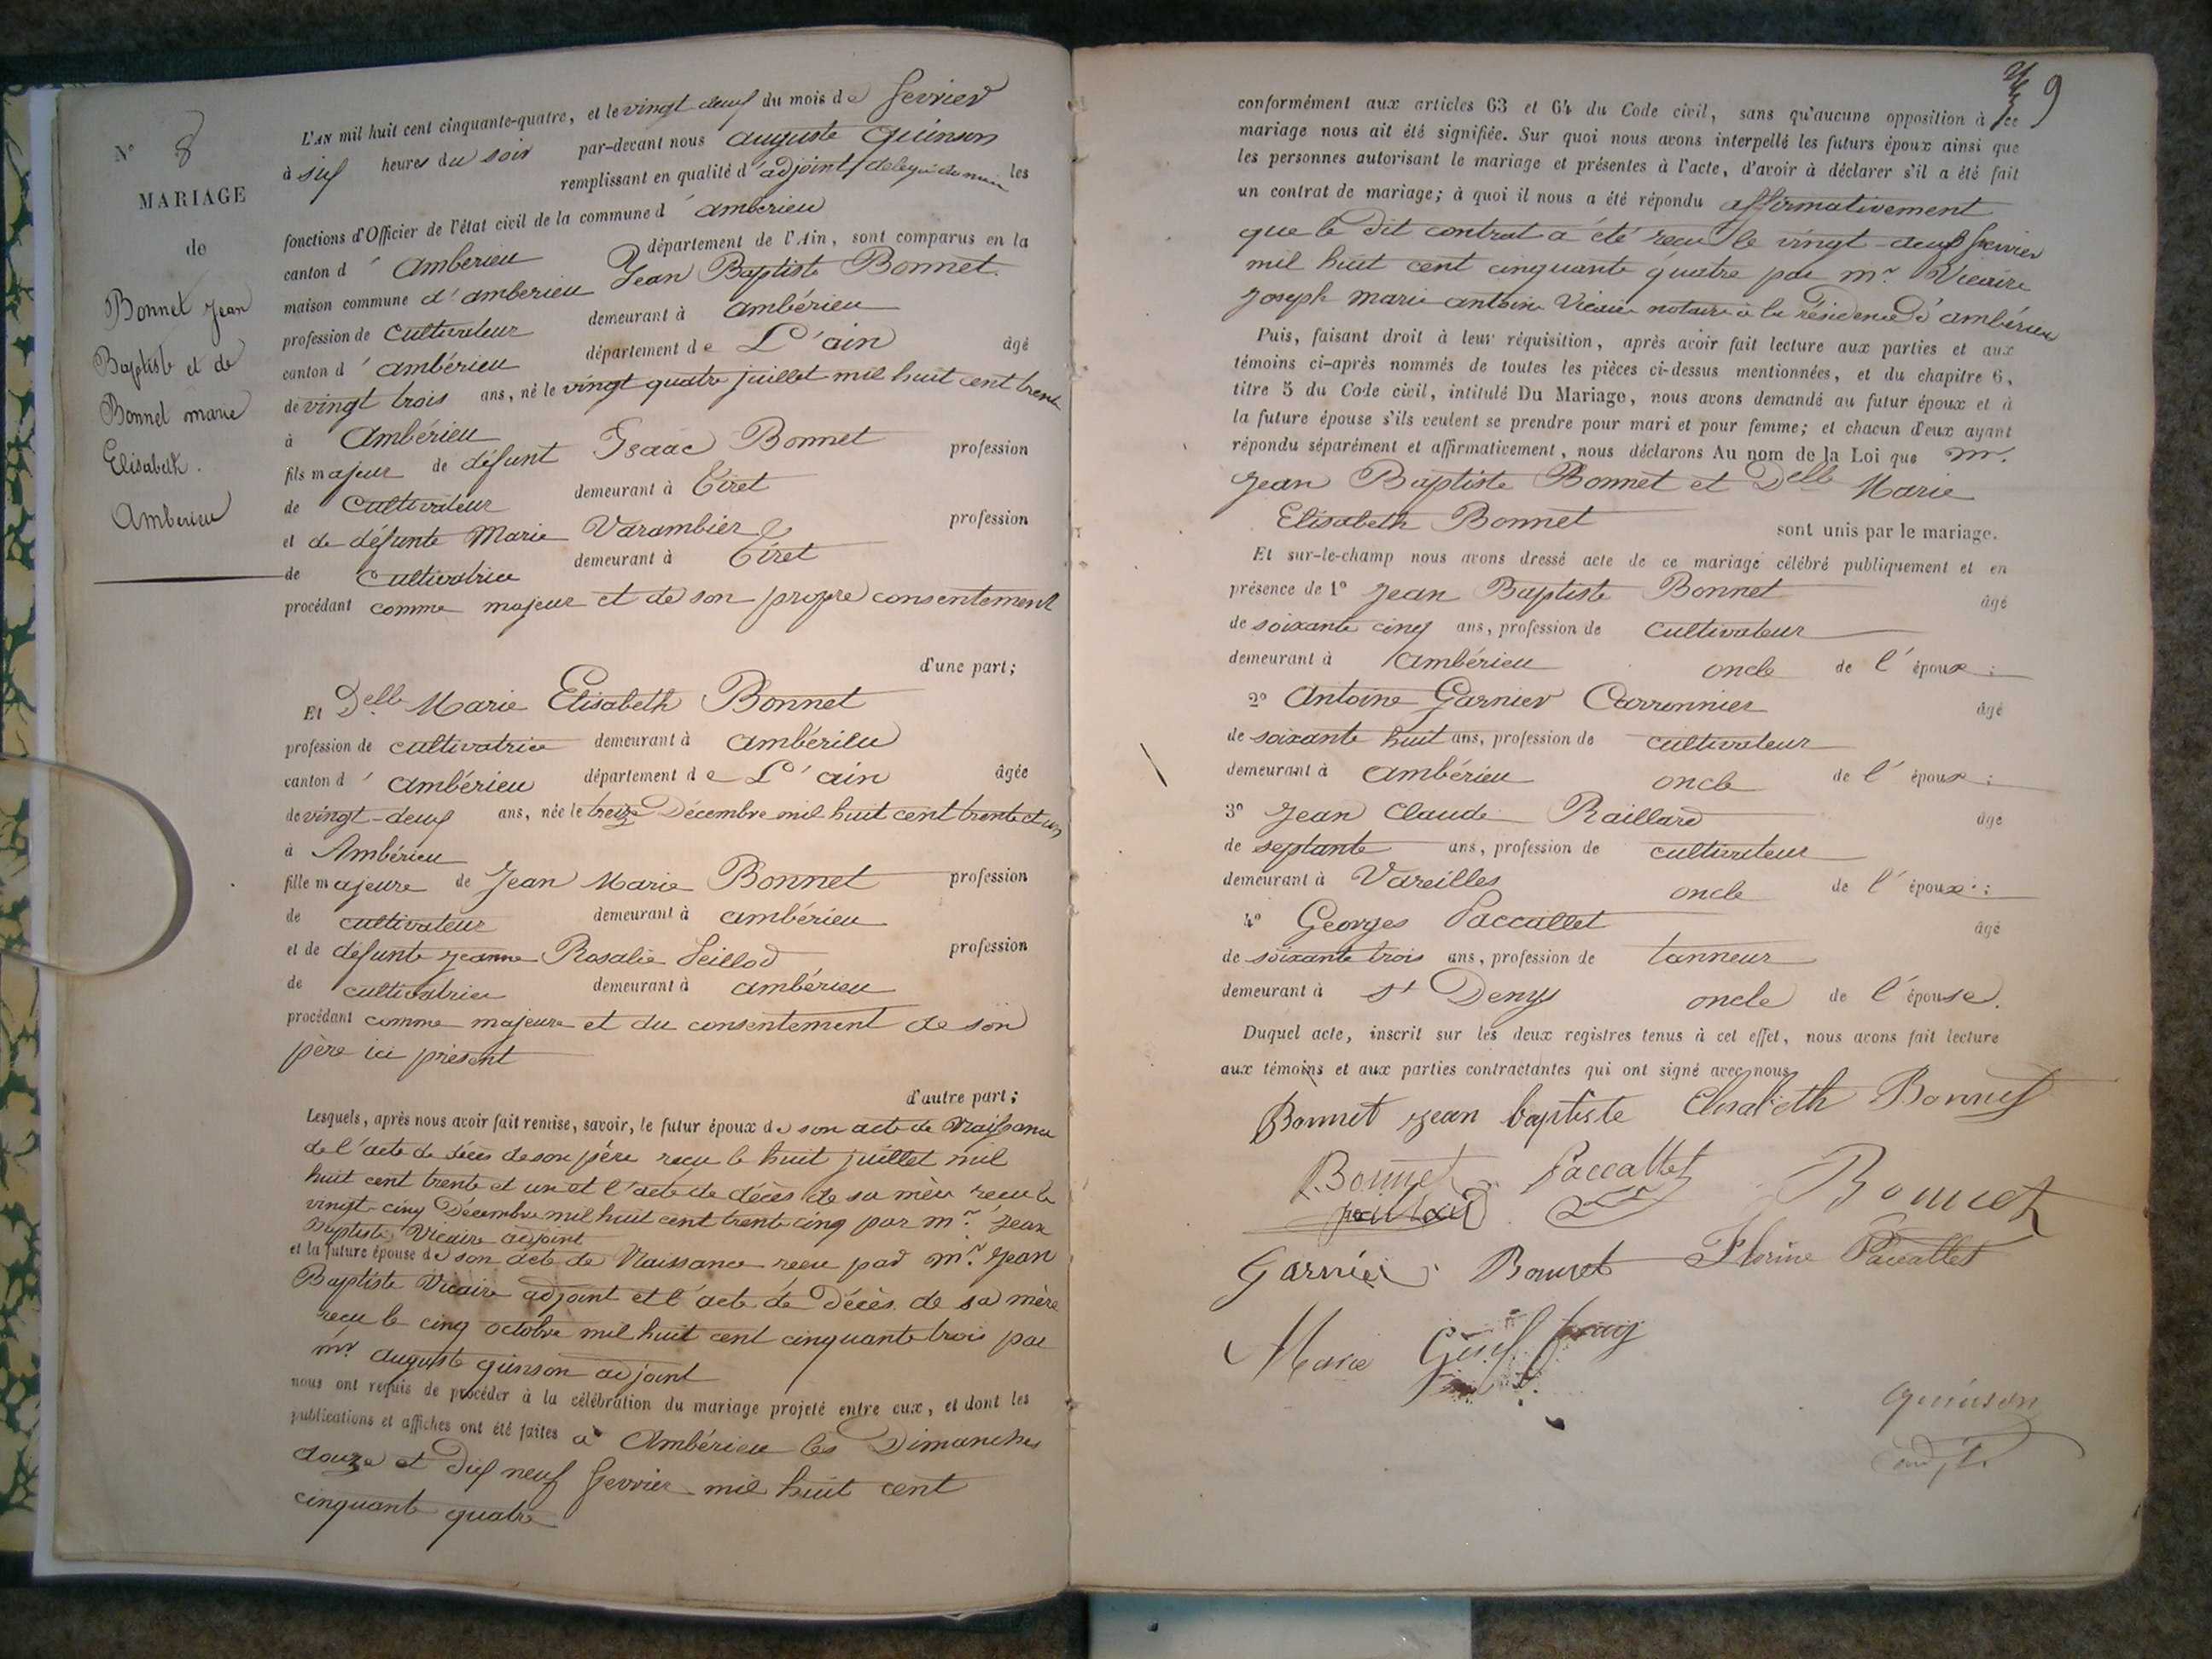 N° 8
MARIAGE
de
Bonnet Jean
Baptiste et de
Bonnet marie
Elisabeth.
Amberieu
L'AN mil huit cent cinquante-quatre, et le vingt deux du mois de fevrier
à six heures du soir par-devant nous auguste Quinson
remplissant en qualité d'adjoint délégué du maire les
fonctions d'Officier de l'état civil de la commune d'amberieu
canton d'amberieu département de l'Ain, sont comparus en la
maison commune d'amberieu Jean Baptiste Bonnet.
profession de cultivateur demeurant à ambérieu
canton d'ambérieu département de L'ain âgé
de vingt trois ans, né le vingt quatre juillet mil huit cent trente
à Ambérieu
fils majeur de défunt Isaac Bonnet profession
de cultivateur demeurant à Tiret
et de défunte Marie Varambier profession
de cultivatrice demeurant à Tiret
procédant comme majeur et de son propre consentement
d'une part;
Et Delle Marie Elisabeth Bonnet
profession de cultivatrice demeurant à ambérieu
canton d'ambérieu département de L'ain âgée
de vingt-deux ans, née le treize Décembre mil huit cent trente et un
à Ambérieu
fille majeure de Jean Marie Bonnet profession
de cultivateur demeurant à ambérieu
et de défunte jeanne Rosalie Seillod profession
de cultivatrice demeurant à ambérieu
procédant comme majeure et du consentement de son
père ici présent
d'autre part;
Lesquels, après nous avoir fait remise, savoir, le futur époux de son acte de Naissance
de l'acte de décès de son père reçu le huit juillet mil
huit cent trente et un et l'acte de décès de sa mère reçu le
vingt-cinq Décembre mil huit cent trente cinq par mr. Jean
Baptiste Vicaire adjoint
et la future épouse de son acte de Naissance reçu par mr. Jean
Baptiste Vicaire adjoint et l'acte de Décès de sa mère
reçu le cinq octobre mil huit cent cinquante trois par
mr auguste quinson adjoint
nous ont requis de procéder à la célébration du mariage projeté entre eux, et dont les
publications et affiches ont été faites à Ambérieu les Dimanches
douze et Dix neuf fevrier mil huit cent
cinquante quatre
9
conformément aux articles 63 et 64 du Code civil, sans qu'aucune opposition à ce
mariage nous ait été signifiée. Sur quoi nous avons interpellé les futurs époux ainsi que
les personnes autorisant le mariage et présentes à l'acte, d'avoir à déclarer s'il a été fait
un contrat de mariage; à quoi il nous a été répondu affirmativement
que le dit contrat a été reçu le vingt-deux fevrier
mil huit cent cinquante quatre par mr. Vicaire
joseph marie antoine Vicaire notaire à la résidence d'ambérieu
Puis, faisant droit à leur réquisition, après avoir fait lecture aux parties et aux
témoins ci-après nommés de toutes les pièces ci-dessus mentionnées, et du chapitre 6,
titre 5 du Code civil, intitulé Du Mariage, nous avons demandé au futur époux et à
la future épouse s'ils veulent se prendre pour mari et pour femme; et chacun d'eux ayant
répondu séparément et affirmativement, nous déclarons Au nom de la Loi que mr.
Jean Baptiste Bonnet et Delle Marie
Elisabeth Bonnet sont unis par le mariage.
Et sur-le-champ nous avons dressé acte de ce mariage célébré publiquement et en
présence de 1° Jean Baptiste Bonnet âgé
de soixante cinq ans, profession de cultivateur
demeurant à Ambérieu oncle de l'époux;
2° Antoine Garnier Carronnier âgé
de soixante huit ans, profession de cultivateur
demeurant à ambérieu oncle de l'époux;
3° Jean Claude Raillard âgé
de septante ans, profession de cultivateur
demeurant à Vareilles oncle de l'époux;
4° Georges Paccallet âgé
de soixante trois ans, profession de tanneur
demeurant à St Denys oncle de l'épouse.
Duquel acte, inscrit sur les deux registres tenus à cet effet, nous avons fait lecture
aux témoins et aux parties contractantes qui ont signé avec nous
Bonnet jean baptiste Elisabeth Bonnet
Bonnet Paccallet Bonnet
Garnier Bonnet Florine Paccallet
Marie
Quinson
adjt